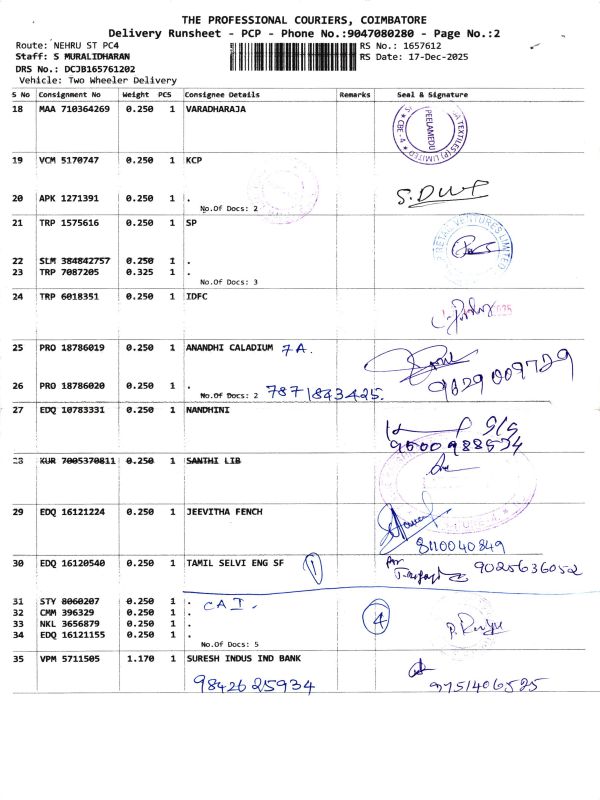 THE PROFESSIONAL COURIERS, COIMBATORE
Delivery Runsheet - PCP - Phone No.:9047080280 - Page No.:2
Route: NEHRU ST PC4 RS No.: 1657612
Staff: S MURALIDHARAN RS Date: 17-Dec-2025
DRS No.: DCJB165761202
Vehicle: Two Wheeler Delivery
S No Consignment No Weight PCS Consignee Details Remarks Seal & Signature
18 MAA 710364269 0.250 1 VARADHARAJA
TEXTILES (P) LIMITED * CBE-4 *
PEELAMEDU
19 VCM 5170747 0.250 1 KCP
20 APK 1271391 0.250 1 .
No.Of Docs: 2
21 TRP 1575616 0.250 1 SP
RETAIL VENTURES LIMITED
22 SLM 384842757 0.250 1 .
23 TRP 7087205 0.325 1 .
No.Of Docs: 3
24 TRP 6018351 0.250 1 IDFC
25 PRO 18786019 0.250 1 ANANDHI CALADIUM 7A.
9029009729
26 PRO 18786020 0.250 1 .
No.Of Docs: 2 7871843425.
27 EDQ 10783331 0.250 1 NANDHINI
9500988574
28 KUR 7005370811 0.250 1 SANTHI LIB
29 EDQ 16121224 0.250 1 JEEVITHA FENCH
8110040849
30 EDQ 16120540 0.250 1 TAMIL SELVI ENG SF 1
9025636052
31 STY 8060207 0.250 1 . CAI.
32 CMM 396329 0.250 1 . 4
33 NKL 3656879 0.250 1 .
34 EDQ 16121155 0.250 1 .
No.Of Docs: 5
35 VPM 5711505 1.170 1 SURESH INDUS IND BANK
9842625934 9751406525